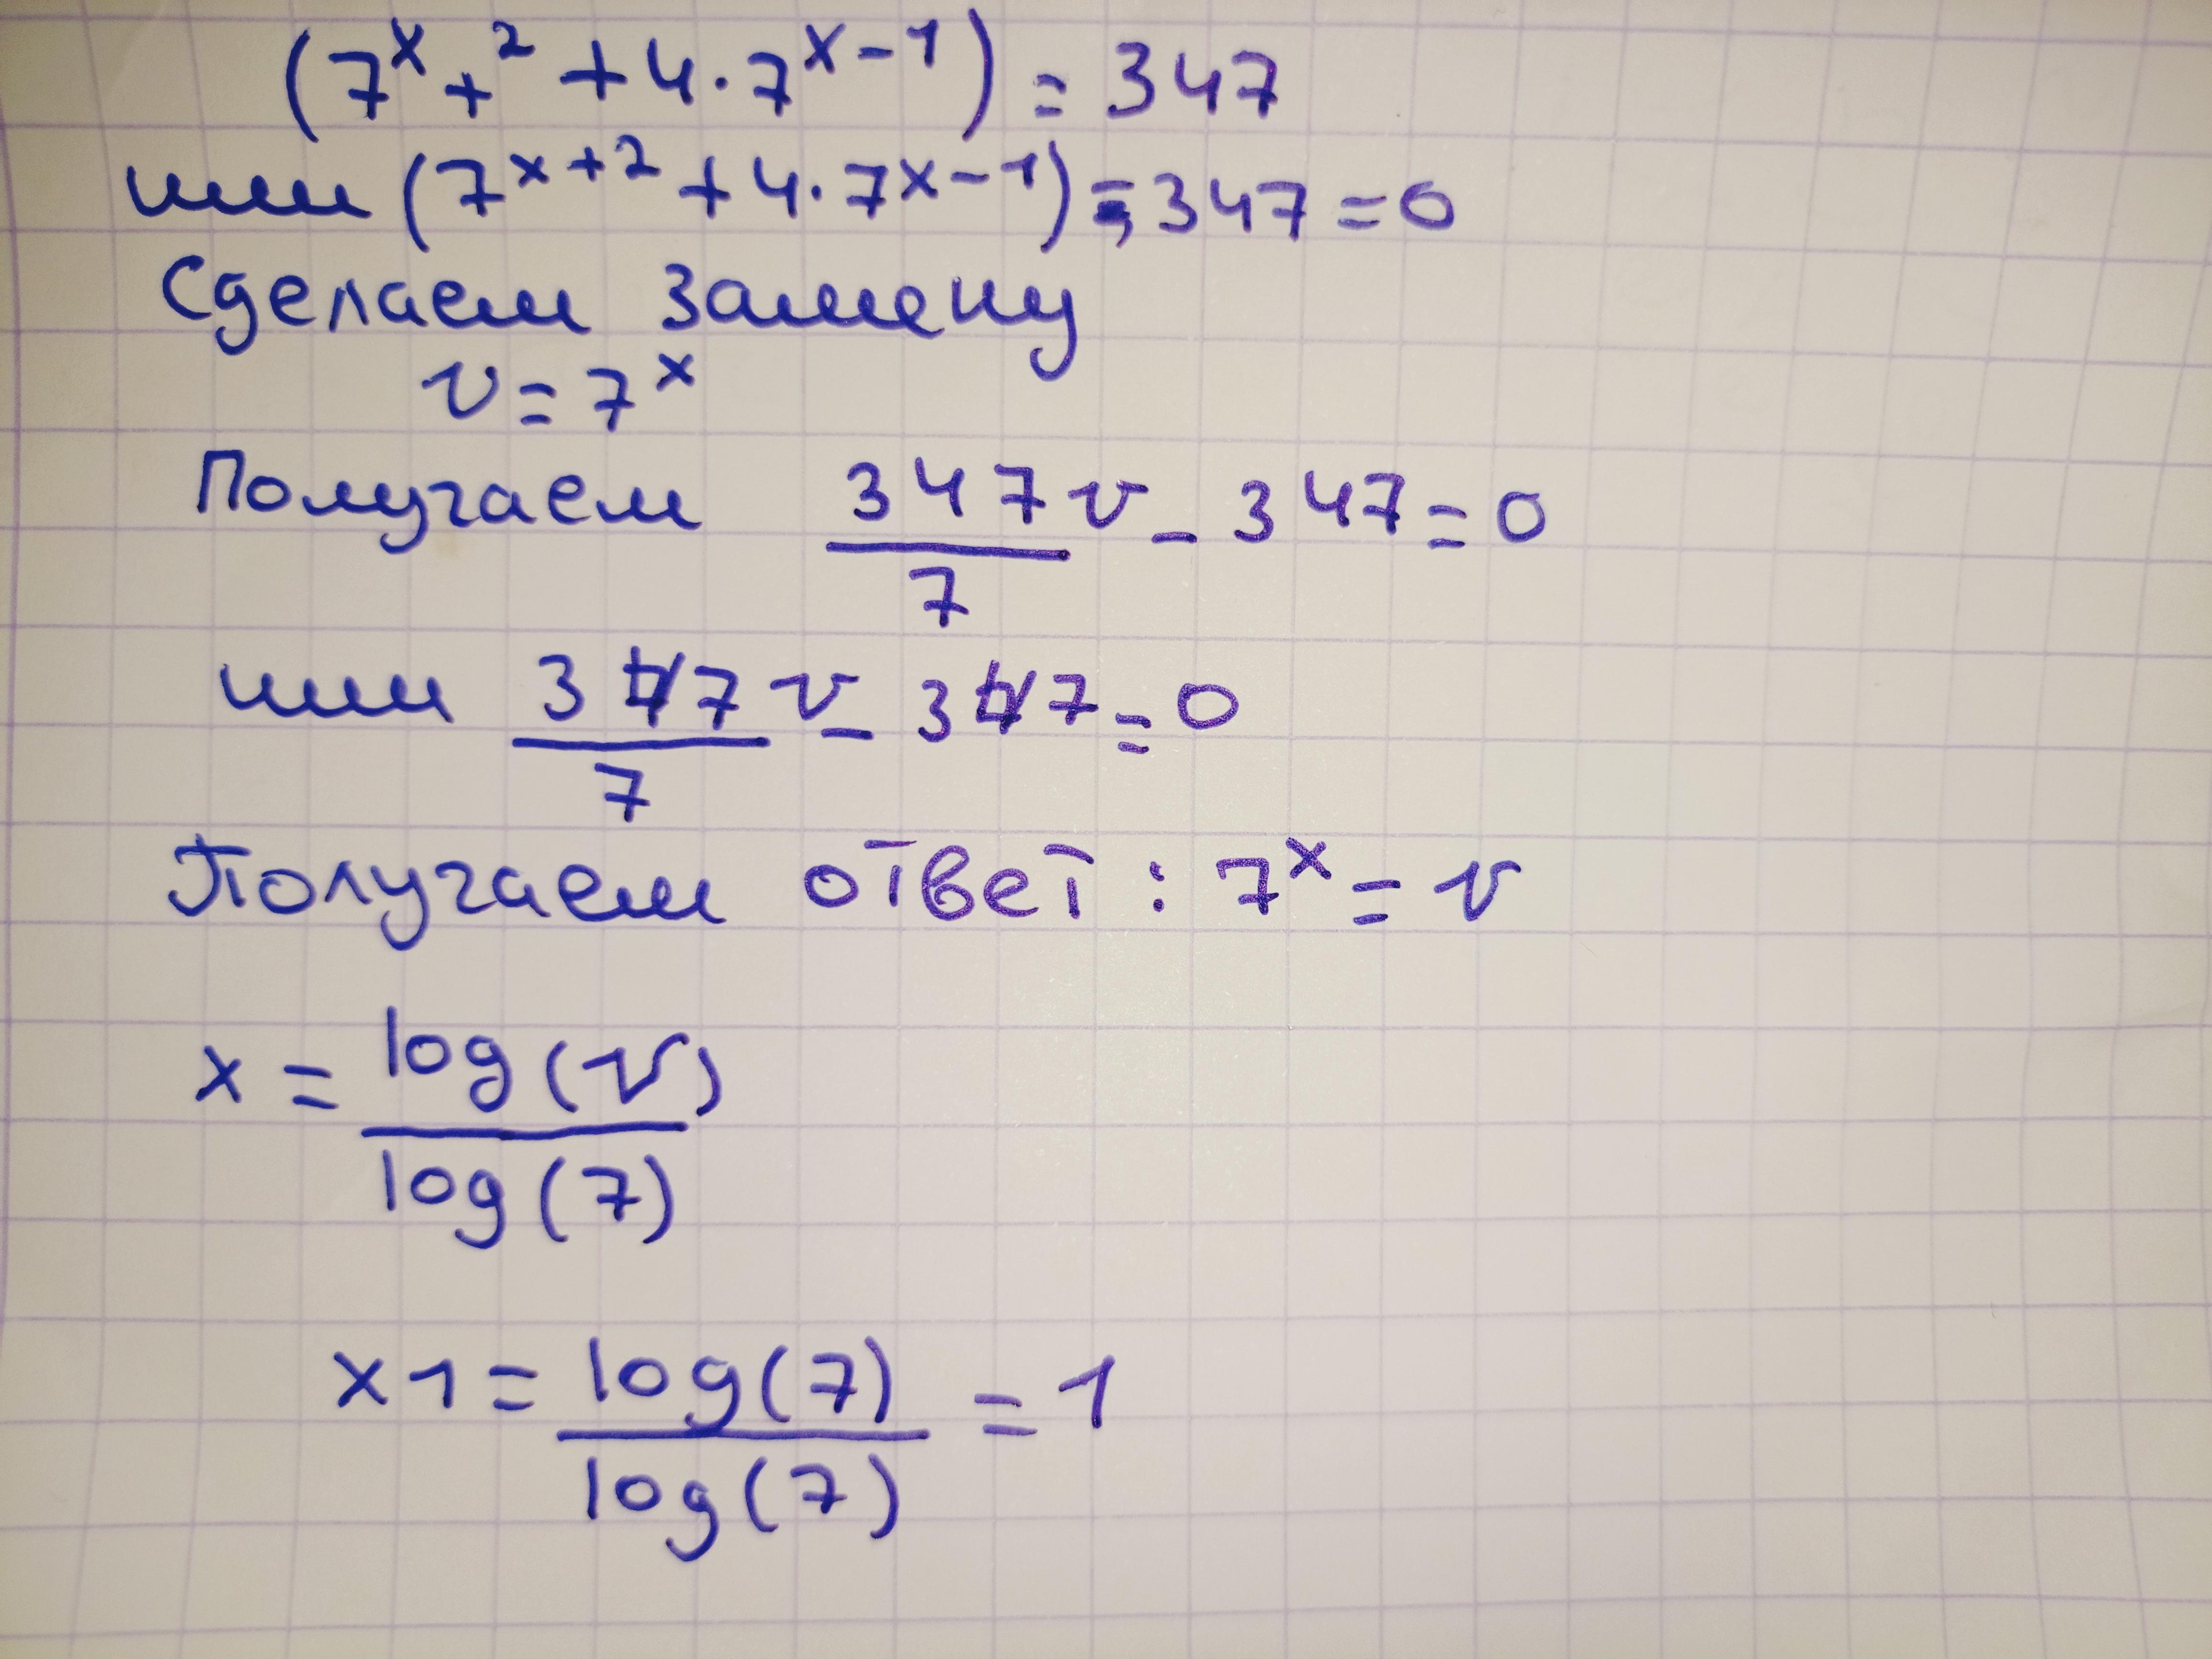 (7^x +^2 + 4·7^(x-1)) = 347
или (7^(x+2) + 4·7^(x-1)) - 347 = 0
Сделаем замену
v = 7^x
Получаем 347/7 v - 347 = 0
или 347/7 v - 347 = 0
Получаем ответ: 7^x = v
x = log(v)/log(7)
x1 = log(7)/log(7) = 1